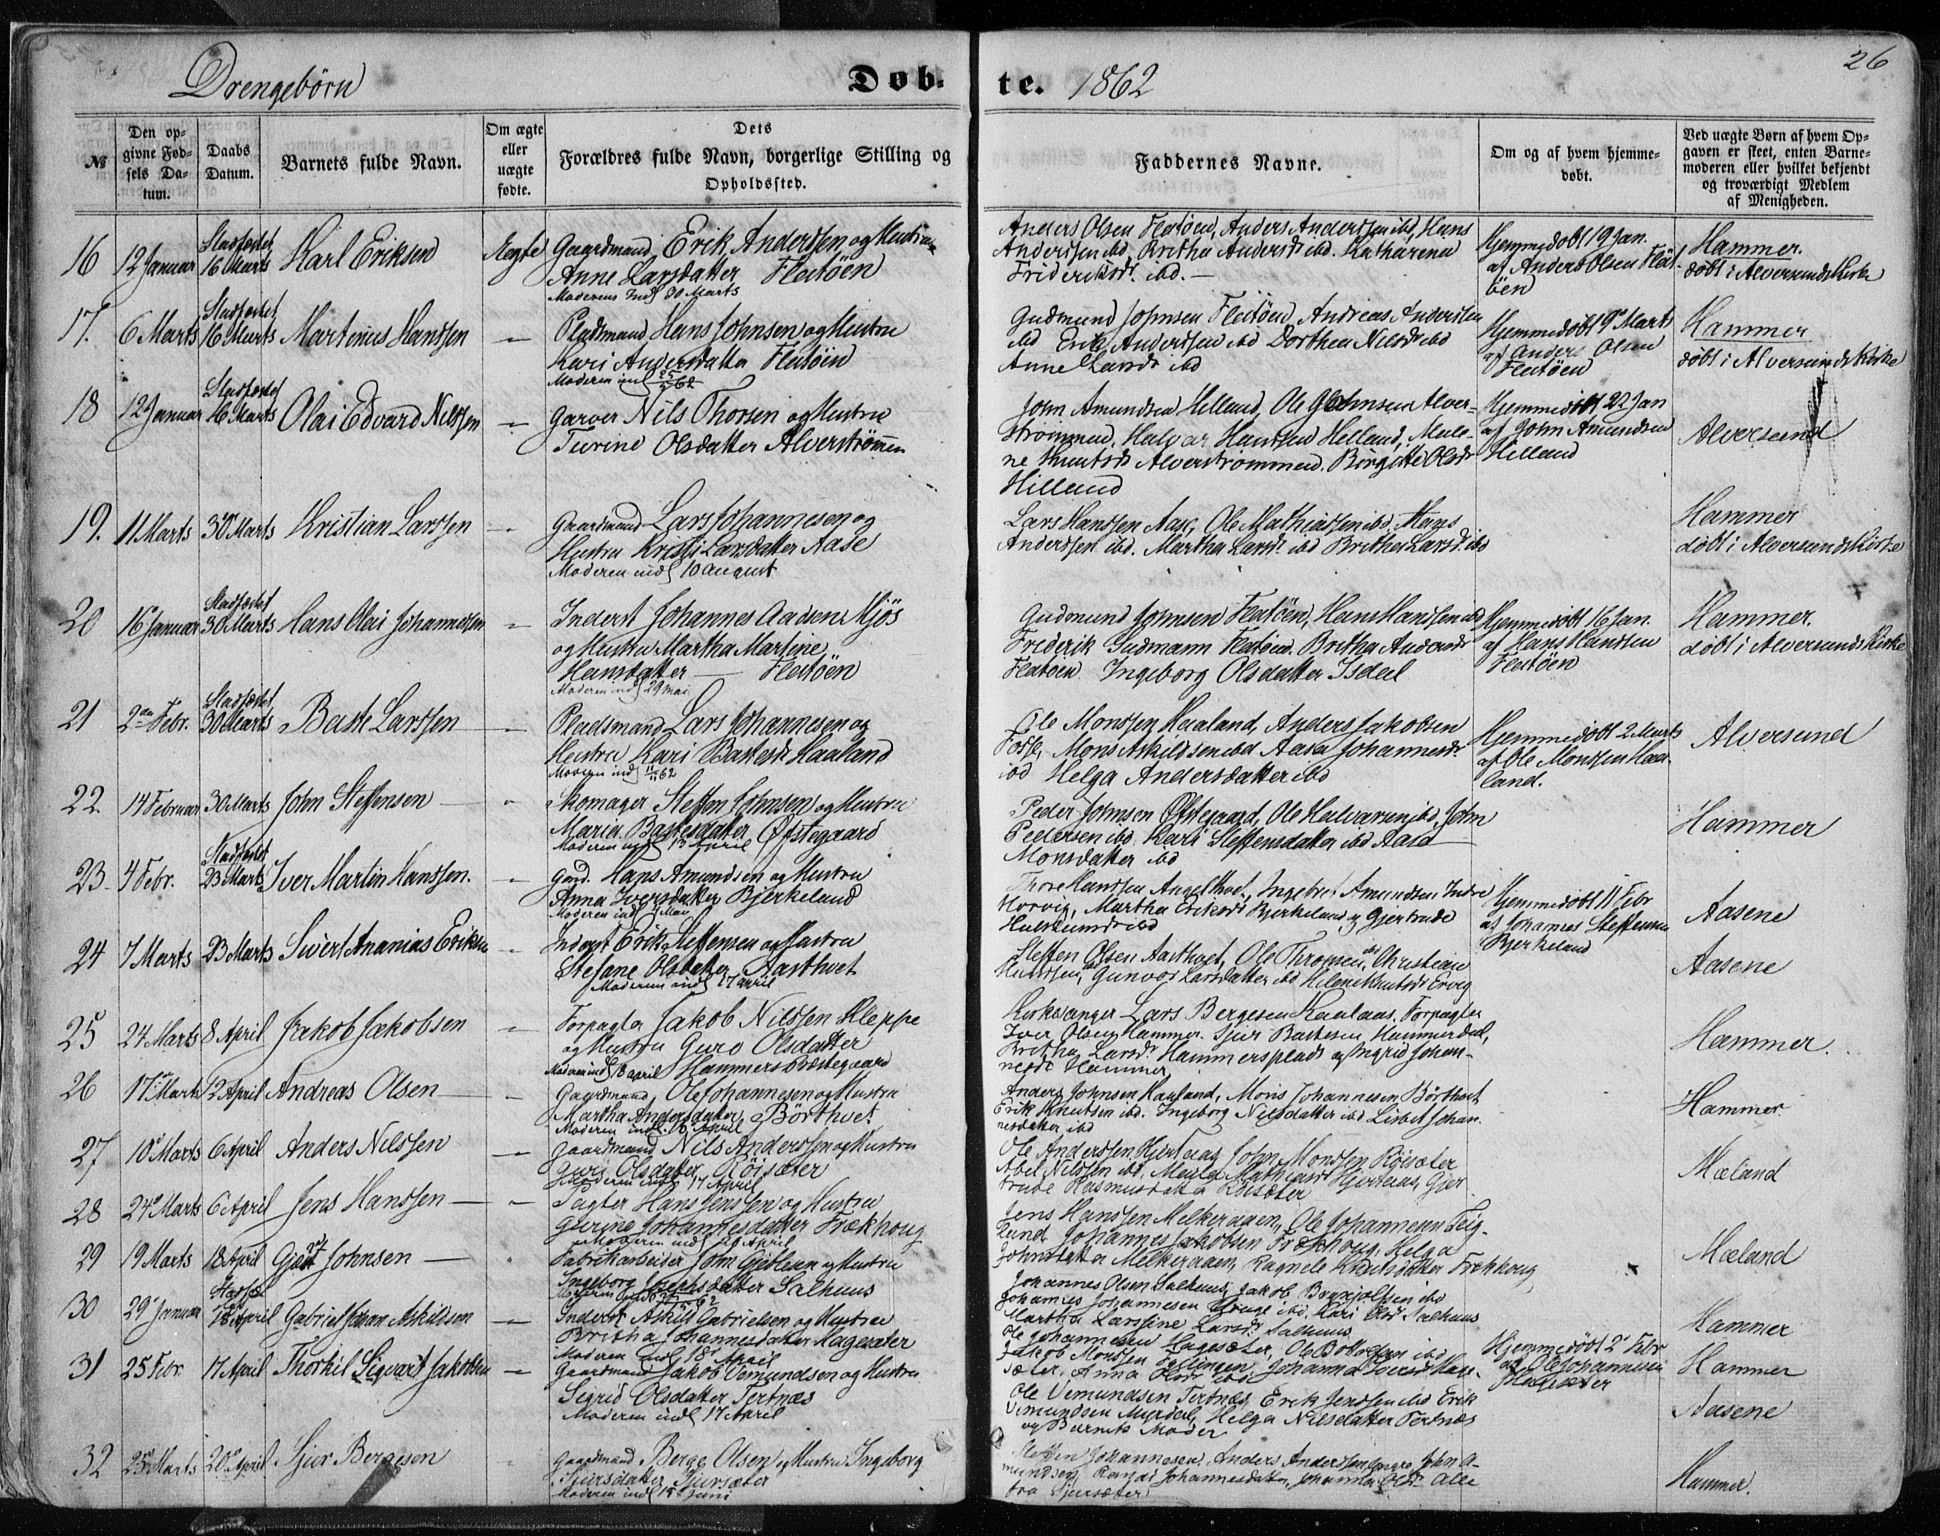 26
Drengebørn Døb- te. 1862
№
Den opgivne Fødsels Datum.
Daabs Datum.
Barnets fulde Navn.
Om ægte eller uægte fødte.
Dets Forældres fulde Navn, borgerlige Stilling og Opholdssted.
Faddernes Navne.
Om og af hvem hjemmedøbt.
Ved uægte Børn af hvem Opgaven er skeet, enten Barnemoderen eller hvilket bekjendt og troværdigt Medlem af Menigheden.
16 12 Januar Stadfæstet 16 Marts Karl Eriksen Ægte Gaardmand Erik Anderssen og Hustru
Anne Larsdatter Flatöen
Moderens Indl 30 Marts
Anders Olsen Flatöen, Anders Anderssen ibd, Hans
Anderssen ibd, Britha Andersd. ibd. Katharena
Frideriksd. ibd. —
Hjemmedöbt 19 Jan.
af Anders Olsen Flatöen
Hammer.
döbt i Alversunds Kirke
17. 6 Marts Stadfæstet 16 Marts Martinus Hanssen — Pladsmand Hans Johnsen og Hustru
Kari Andersdatter Flatöen
Moderen indl 25/5 62
Gudmund Johnsen Flatöen, Andreas Anderssen
ibd Erik Anderssen ibd Dorthea Nilsd ibd
Anne Larsd ibd
Hjemmedöbt 9 Marts
af Anders Olsen
Flatöen
Hammer
döbt i Alversunds Kirke
18 12 Januar Stadfæstet 16 Marts Olai Edvard Nilssen — Garver Nils Thorsen og Hustru
Turine Olsdatter Alverströmmen
John Amundsen Helland, Ole Johnsen Alverströmmen, Halvar Hansen Helland, Malene Knutsd Alverströmmen. Börgitte Olsd
Helland
Hjemmedöbt 22 Jan
af John Amundsen
Helland
Alversund
19. 11 Marts 30 Marts Kristian Larssen — Gaardmand Lars Johannesen og
Hustru Kristi Larsdatter Aase
Moderen indl 10 august
Lars Hanssen Aase, Ole Mathiassen ibd, Hans
Anderssen ibd. Martha Larsd. ibd Britha Larsd. ibd
Hammer
döbt i Alversunds Kirke
20 16 Januar Stadfæstet 30 Marts Hans Olai Johannessen — Inderst Johannes Aadsen Mjös
og Hustru Martha Martine
Hansdatter — Flatöen
Moderen indl 29 mai
Gudmund Johnsen Flatöen, Hans Hanssen ibd
Frederik Gudmann Flatöen. Britha Andersd
Flatöen Ingeborg Olsdatter Isdal
Hjemmedöbt 16 Jan.
af Hans Hanssen
Flatöen
Hammer.
döbt i Alversunds Kirke
21 2den Febr. Stadfæstet 30 Marts Baste Larssen — Pladsmand Lars Johannesen og
Hustru Kari Bastesd. Haaland
Ole Monssen Haaland, Anders Jakobsen
Fosse, Mons Askildsen ibd Aasa Johannesd
ibd Helga Andersdatter ibd
Hjemmedöbt 2 Marts
af Ole Monssen Haaland.
Alversund
22. 14 Februar 30 Marts John Steffensen Skomager Steffen Johnsen og Hustru
Maria Bastesdatter Öfstegaard
Moderen indl 13 April
Peder Johnsen Öfstegaard, Ole Halvarsen ibd, John
Pedersen ibd. Kari Steffensdatter ibd Aasa
Monsdatter ibd
Hammer
23. 4 Febr. Stadfæstet 23 Marts Iver Martin Hanssen. — Gmd. Hans Amundsen og Hustru
Anna Iversdatter Bjerkeland
Martha Eriksd Bjerkeland og Gjertrude
Hjemmedöbt 11 Febr
af Johannes Steffensen
Bjerkeland
Aasene
24 7 Marts 23 Marts Sivert Ananias Eriksen — Inderst Erik Steffensen og Hustru
Stefane Olsdatter Aasthvet
Moderen indl 17 april
Steffen Olsen Aasthvet, Ole
Gunvor Larsdatter ibd
Aasene
25 24 Marts 8 April Jakob Jakobsen — Forpagter Jakob Nilssen Kleppe
og Hustru Guro Olsdatter
Moderen indl 18 april Hammers Præstegaard
Kirkesanger Lars Bergesen Forpagter
Iver Olsen Hammer. Sjur Bastesen Hammersdal,
Britha Larsd. Hammersplads og Ingrid Johannesd Hammer
Hammer.
26 17 Marts 12 April Andreas Olsen — Gaardmand Ole Johannesen og Hustru
Martha Andersdatter Börthvet
Moderen indl. 18 April
Anders Johnsen Haaland, Mons Johannesen Börthvet
Erik Knutsen ibd. Ingeborg Nilsdatter ibd Lisbet Johannesdatter ibd
Hammer
27 10 Marts 6 April Anders Nilssen — Gaardmand Nils Anderssen og Hustru
Guri Olsdatter Röisæter
Moderen indl 17 April
Ole Anderssen Hjertaas John Monssen Röisæter
Abel Nilssen ibd, Hjertaas, Gjertrude Rasmusdatter Röisæter
Mæland
28 24 Marts 6 April Jens Hanssen — Hans Jenssen og Hustru
Johannesdatter Frækhoug
Moderen indl 20 April
Jens Hanssen Melkeraaen, Ole Johannesen
Johannes Jakobsen Frækhoug, Helga
Johnsdatter Melkeraaen, Ragnele Knutsdatter Frækhoug
Mæland
29 19 Marts 18 April Johnsen — Fabrikarbeider John og Hustru
Ingeborg Salhuus
Johannes Olsen Salhuus, Jakob Brynjolfsen ibd
Johannes Johannesen ibd, Kari Olsd Salhuus
Martha Larssine Larsd. Salhuus
Hammer
30 29 Januar Stadfæ 18 April Gabriel Johan Askildsen — Inderst Askild Gabrielsen og Hustru
Britha Johannesdatter Hagesæter
Moderen indl 18 April
Ole Johannesen Hagesæter, Ole ibd
Jakob Monssen Anna Olsd ibd Johanna
Hjemmedöbt 2 Febr
af Ole Johannesen
Hagesæter
Hammer
31 25 Febr. 17 April Thorkil Sigvart Jakobsen — Gaardmand Jakob Vemundsen og Hustru
Sigrid Olsdatter Tertnæs
Moderen indl 17 April
Ole Vemundsen Tertnæs, Erik Jenssen ibd Erik
Vemundsen Myrdal, Helga Nilsdatter Tertnæs
og Barnets Moder
Aasene
32 25 Marts 20 April Sjur Bergesen Gaardmand Berge Olsen og Hustru Ingeborg
Sjursdatter Sjursæter
Moderen indl 15 Juni
Johannesen, Anders Anderssen John Amundsen, Johannesdatter, Johanna Olsd. Alle
fra Sjursæter
Hammer.